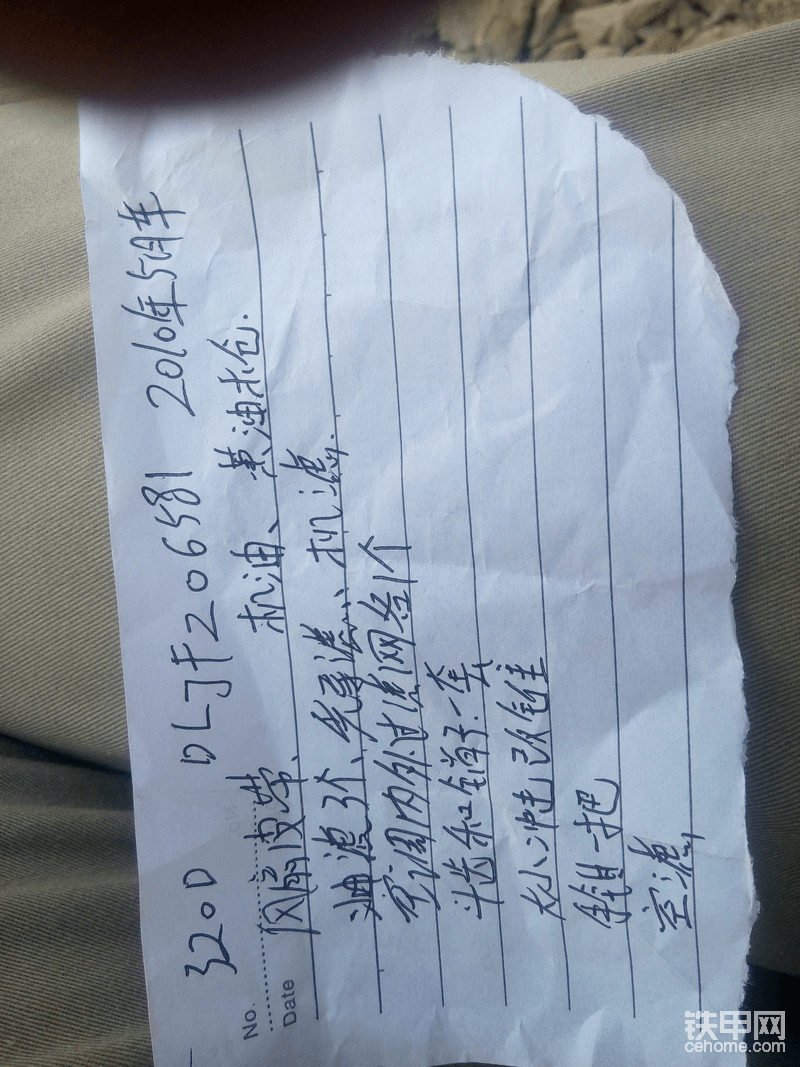 320D DLJF206581 2010年5月车
No.
Date
风扇皮带、机油、黄油大仓.
油滤3个、先导滤、机滤.
空调内外过滤网各1个
斗齿和销子一套
大小冲击 改锥
钳一把
空滤
铁甲网
cehome.com